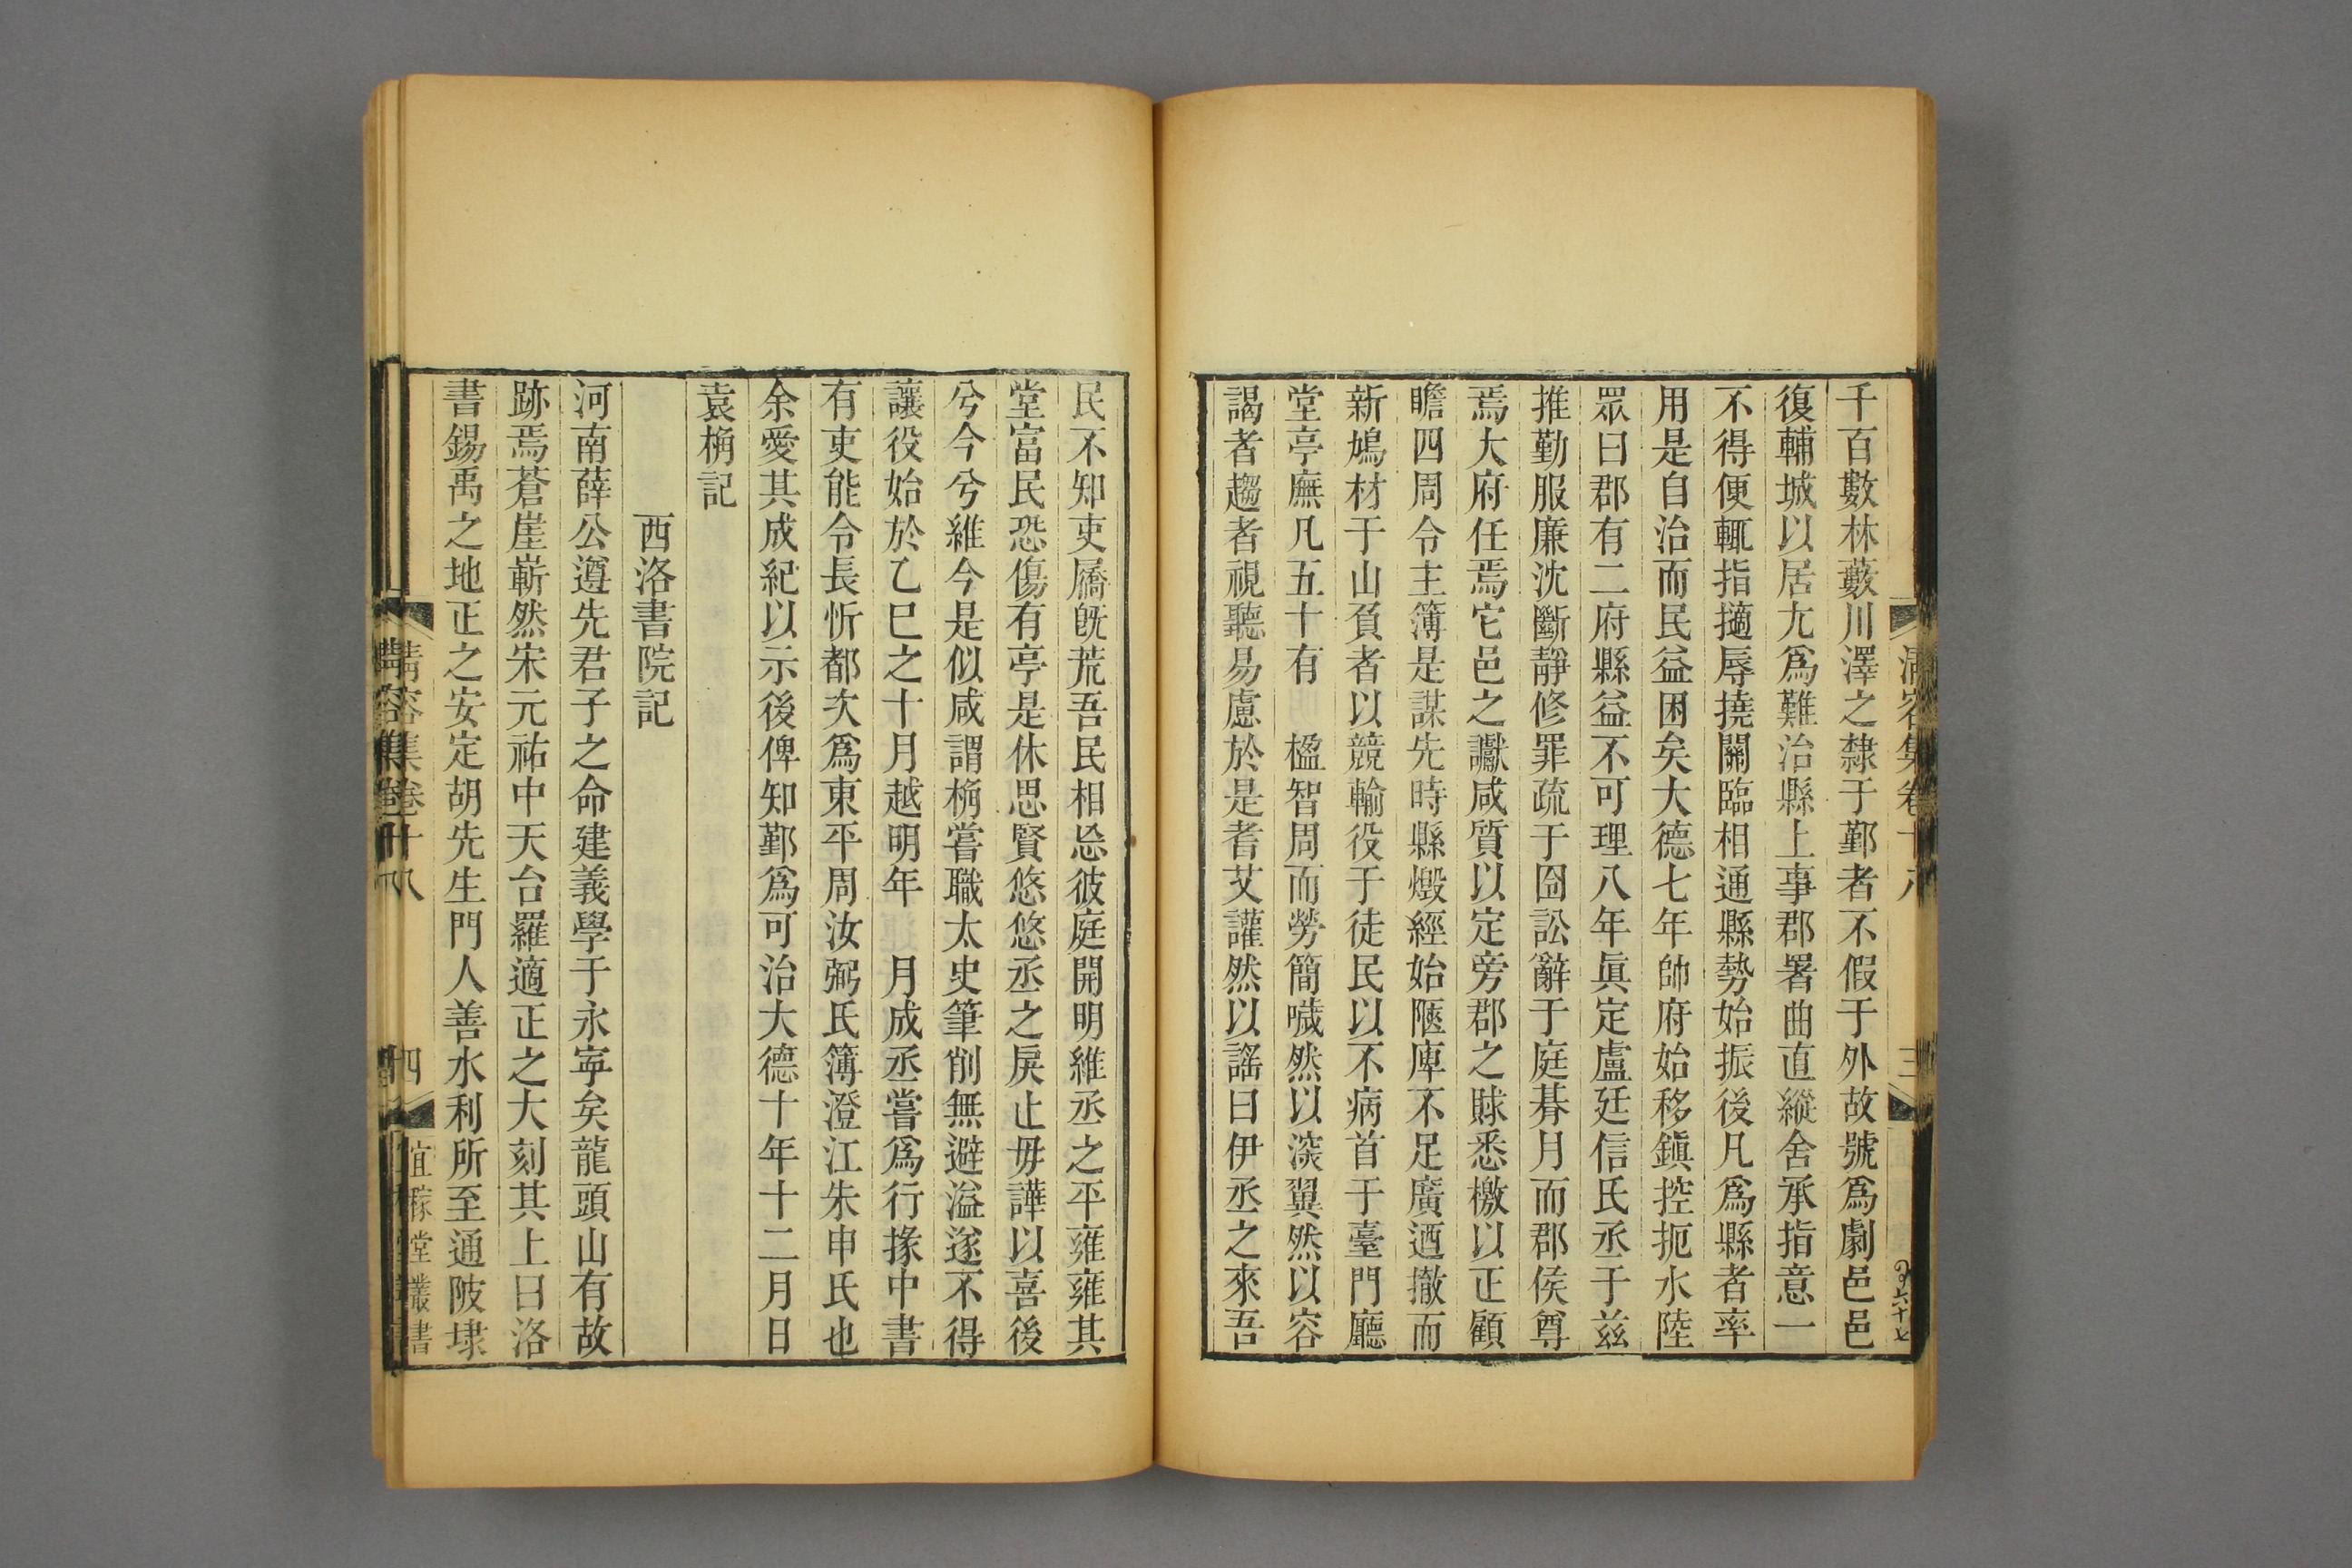 千百數林藪川澤之隸于鄞者不假于外故號爲劇邑邑
復輔城以居尢爲難治縣上事郡署曲直縱舍承指意一
不得便輒指擿辱撓關臨相通縣勢始振後凡爲縣者率
用是自治而民益困矣大德七年帥府始移鎭控扼水陸
眾曰郡有二府縣益不可理八年眞定盧廷信氏丞于兹
推勤服廉沈斷靜修罪疏于囹訟辭于庭朞月而郡侯尊
焉大府任焉它邑之讞咸質以定旁郡之賕悉檄以正顧
瞻四周令主簿是謀先時縣燬經始陿庳不足廣迺撤而
新鳩材于山負者以競輸役于徒民以不病首于臺門廳
堂亭廡凡五十有　楹智周而勞簡嘁然以深翼然以容
謁者趨者視聽易慮於是耆艾讙然以謡曰伊丞之來吾
清容集卷十八
三
民不知吏屬旣荒吾民相忩彼庭開明維丞之平雍雍其
堂富民恐傷有亭是休思賢悠悠丞之戾止毋譁以喜後
兮今兮維今是似咸謂桷嘗職太史筆削無避溢遂不得
讓役始於乙巳之十月越明年　月成丞嘗爲行掾中書
有吏能令長忻都次爲東平周汝弼氏簿澄江朱申氏也
余愛其成紀以示後俾知鄞爲可治大德十年十二月日
袁桷記
西洛書院記
河南薛公遵先君子之命建義學于永寧矣龍頭山有故
跡焉蒼崖嶄然宋元祐中天台羅適正之大刻其上曰洛
書錫禹之地正之安定胡先生門人善水利所至通陂埭
清容集卷十八
四
宜稼堂叢書